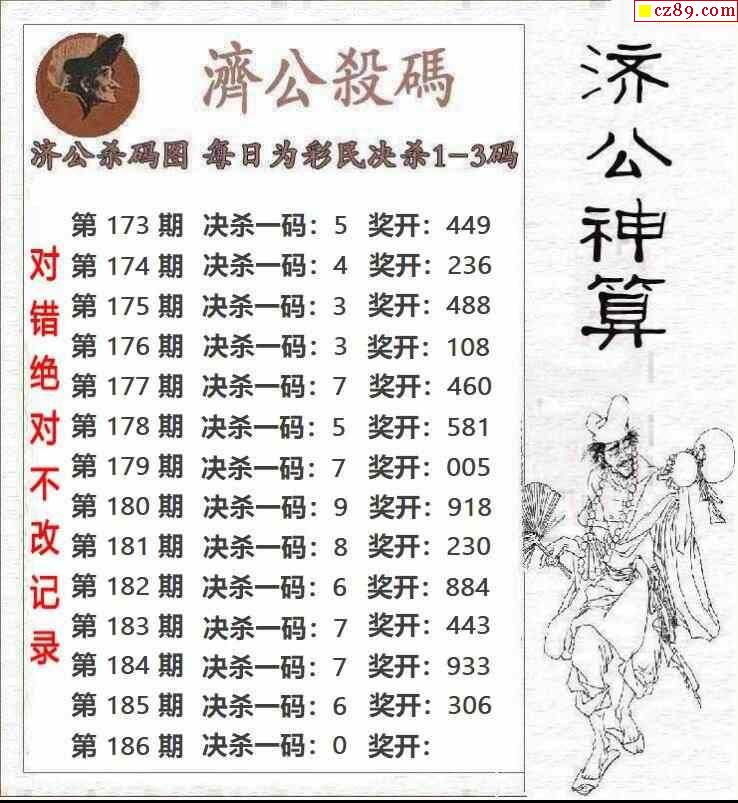 cz89.com
濟公殺碼
济公杀码图 每日为彩民决杀1-3码
第 173 期 决杀一码：5 奖开：449
第 174 期 决杀一码：4 奖开：236
第 175 期 决杀一码：3 奖开：488
第 176 期 决杀一码：3 奖开：108
第 177 期 决杀一码：7 奖开：460
第 178 期 决杀一码：5 奖开：581
第 179 期 决杀一码：7 奖开：005
第 180 期 决杀一码：9 奖开：918
第 181 期 决杀一码：8 奖开：230
第 182 期 决杀一码：6 奖开：884
第 183 期 决杀一码：7 奖开：443
第 184 期 决杀一码：7 奖开：933
第 185 期 决杀一码：6 奖开：306
第 186 期 决杀一码：0 奖开：
对错绝对不改记录
济公神算